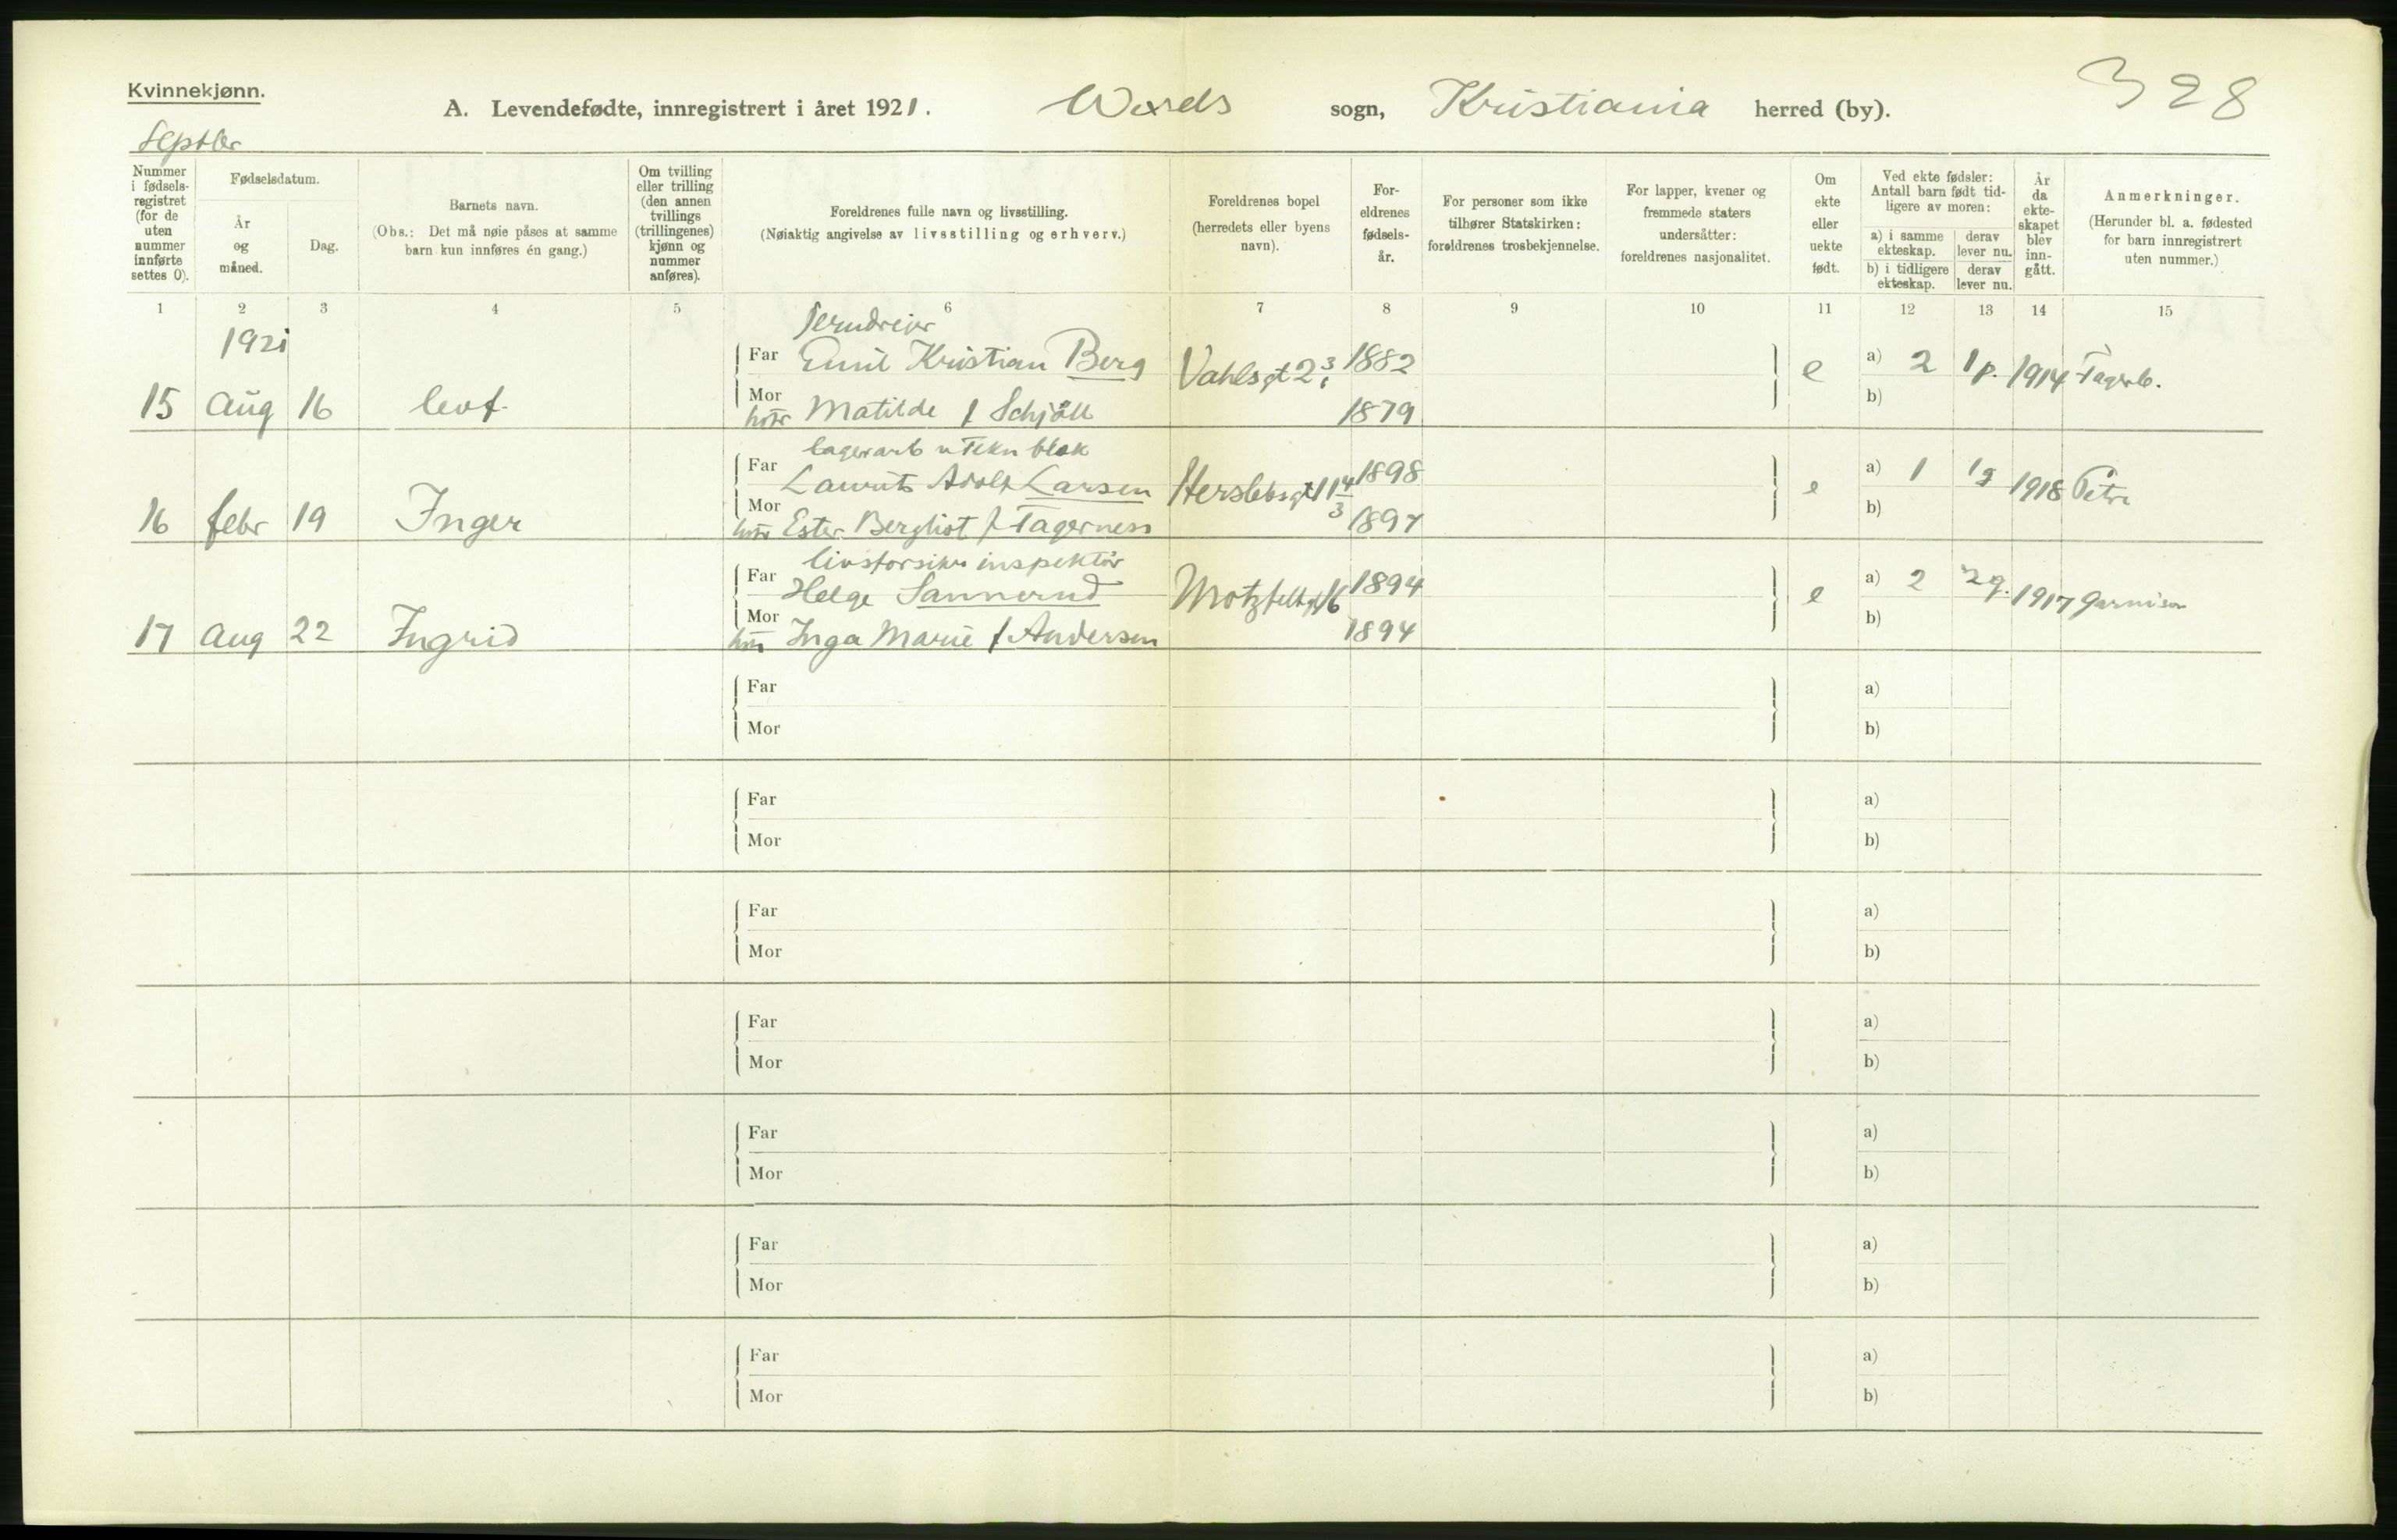 Kvinnekjønn.
A. Levendefødte, innregistrert i året 1921.
Wexels sogn, Kristiania herred (by).
328
Septbr
Nummer i fødsels-registret (for de uten nummer innførte settes 0).
Fødselsdatum.
År og måned.
Dag.
Barnets navn.
(Obs.: Det må nøie påses at samme barn kun innføres én gang.)
Om tvilling eller trilling (den annen tvillings (trillingenes) kjønn og nummer anføres).
Foreldrenes fulle navn og livsstilling.
(Nøiaktig angivelse av livsstilling og erhverv.)
Foreldrenes bopel (herredets eller byens navn).
Foreldrenes fødselsår.
For personer som ikke tilhører Statskirken: foreldrenes trosbekjennelse.
For lapper, kvener og fremmede staters undersåtter: foreldrenes nasjonalitet.
Om ekte eller uekte født.
Ved ekte fødsler: Antall barn født tidligere av moren:
a) i samme ekteskap.
derav lever nu.
b) i tidligere ekteskap.
derav lever nu.
År da ekteskapet blev inngått.
Anmerkninger.
(Herunder bl. a. fødested for barn innregistrert uten nummer.)
1 2 3 4 5 6 7 8 9 10 11 12 13 14 15
1921
Jerndreier
Far Emil Kristian Berg Vahlsgt 2 3/1 1882 e a) 2 1 p. 1914 Fagerb.
15 Aug 16 levf. Mor Matilde f Schjöll 1879 b)
lagerarb v Tekn blok
Far Laurits Adolf Larsen Herslebsgt 11 4/3 1898 e a) 1 1 g 1918 Petri
16 febr 19 Inger Mor hstr Ester Bergliot f Fagerness 1897 b)
livsforsikr inspektör
Far Helge Sannerud Motzfeltgt 16 1894 e a) 2 2 g. 1917 Garnison
17 Aug 22 Ingrid Mor hstr Inga Marie f Andersen 1894 b)
Far a)
Mor b)
Far a)
Mor b)
Far a)
Mor b)
Far a)
Mor b)
Far a)
Mor b)
Far a)
Mor b)
Far a)
Mor b)